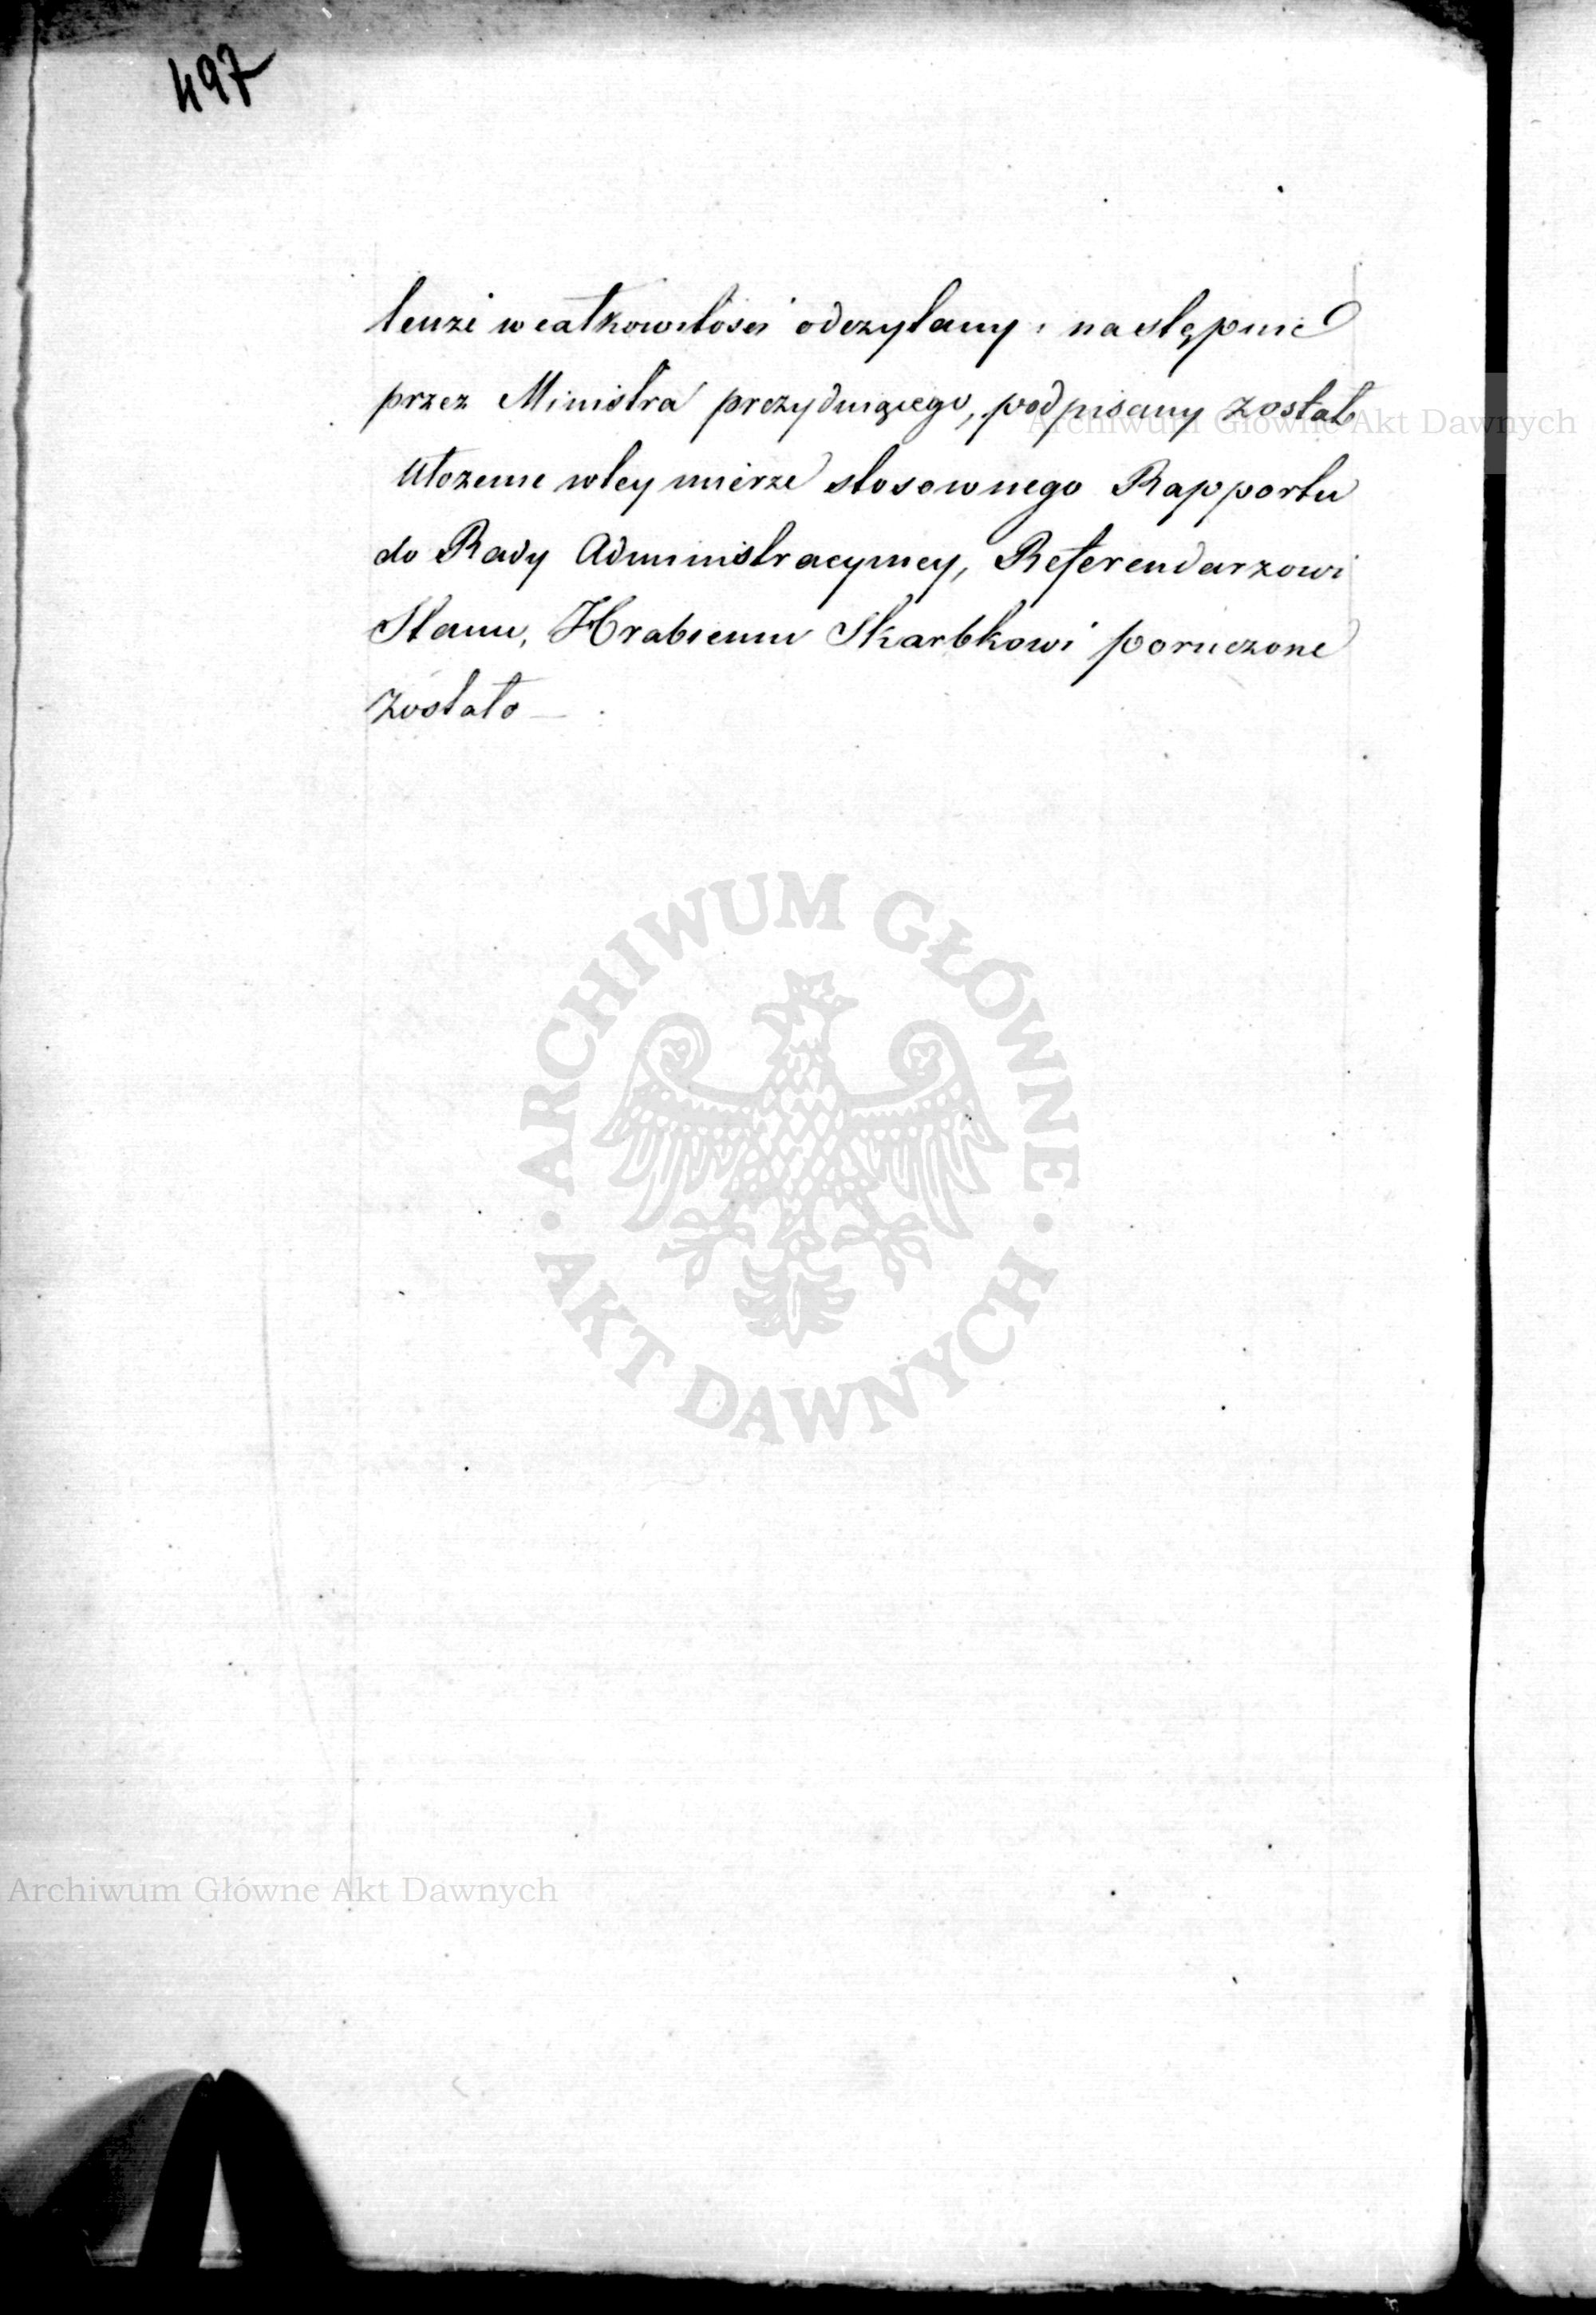 497
tenże w całkowitości odczytany i następnie
przez Ministra prezydującego, podpisany został
Ułożenie w tey mierze stosownego Rapportu
do Rady Administracyiney, Referendarzowi
Stanu, Hrabiemu Skarbkowi poruczone
zostało —
Archiwum Główne Akt Dawnych
ARCHIWUM GŁÓWNE
AKT DAWNYCH
Archiwum Główne Akt Dawnych